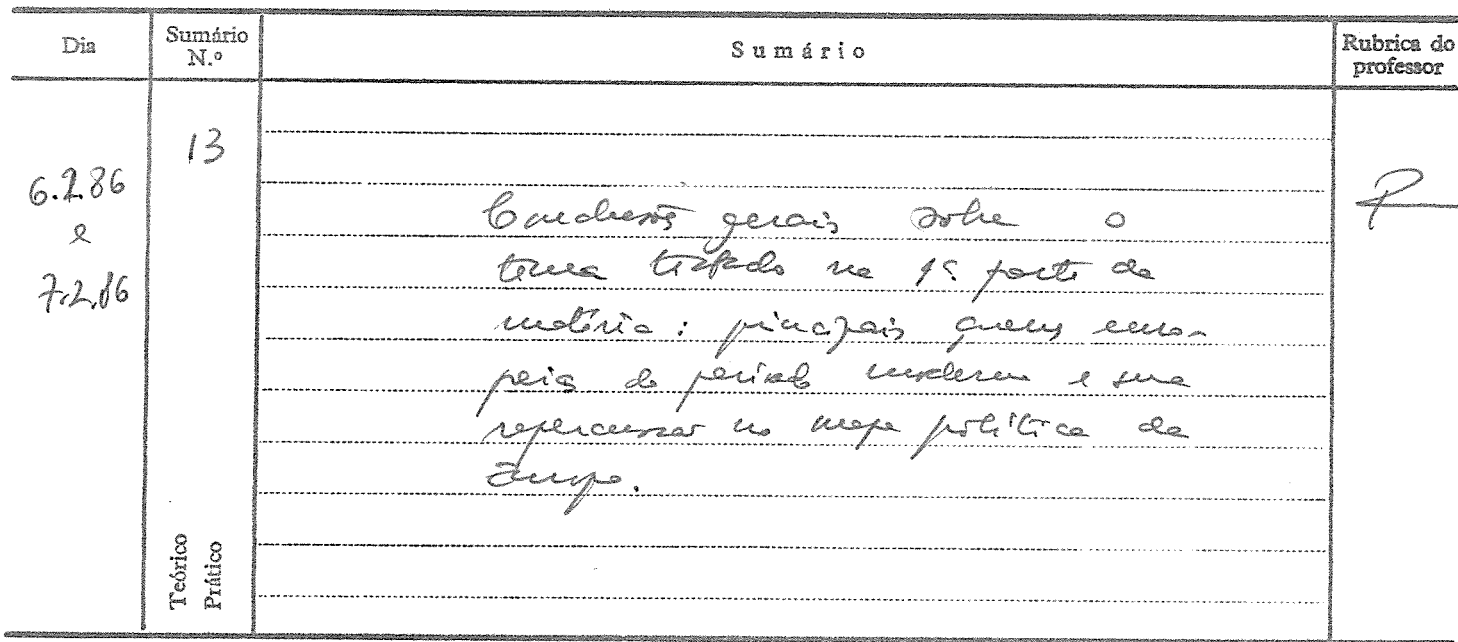 Dia
Sumário N.º
Sumário
Rubrica do professor
13
6.2.86
e
7.2.86
Conclusões gerais sobre o
tema tratado na 1ª parte da
matéria: principais guerras euro-
peias do período moderno e sua
repercussão no mapa político da
Europa.
Teórico
Prático